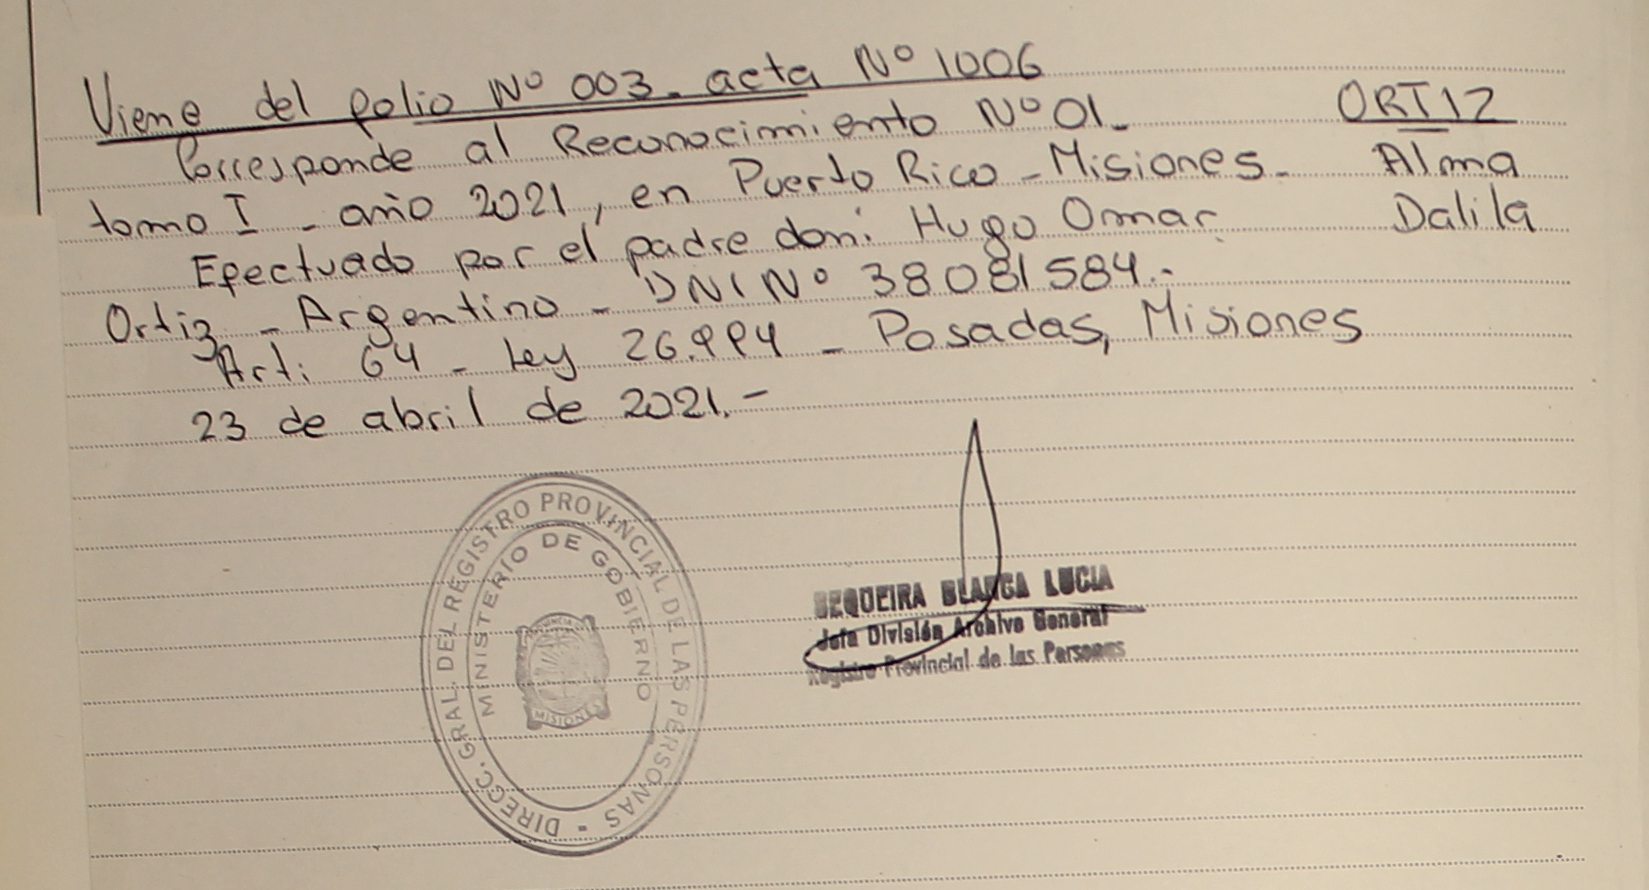 Viene del folio Nº 003. acta Nº 1006
Corresponde al Reconocimiento Nº 01.-
tomo I - año 2021, en Puerto Rico - Misiones.-
Efectuado por el padre don: Hugo Omar
Ortiz - Argentino - DNI Nº 38081584.-
Art: 64 - Ley 26.994 - Posadas, Misiones
23 de abril de 2021.-
ORTIZ
Alma
Dalila
DIRECC. GRAL. DEL REGISTRO PROVINCIAL DE LAS PERSONAS
MINISTERIO DE GOBIERNO
MISIONES
SEQUEIRA BLANCA LUCIA
Jefa División Archivo General
Registro Provincial de las Personas